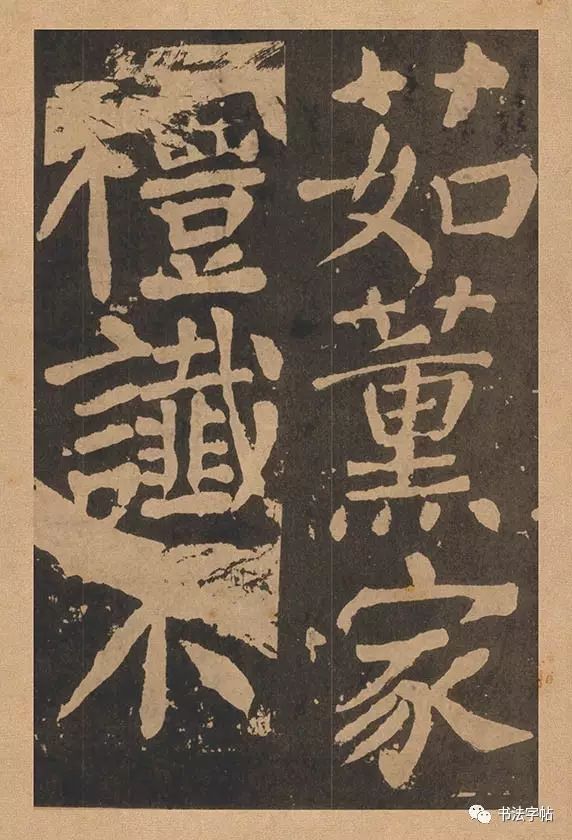 茹薰家
禮讖不
书法字帖